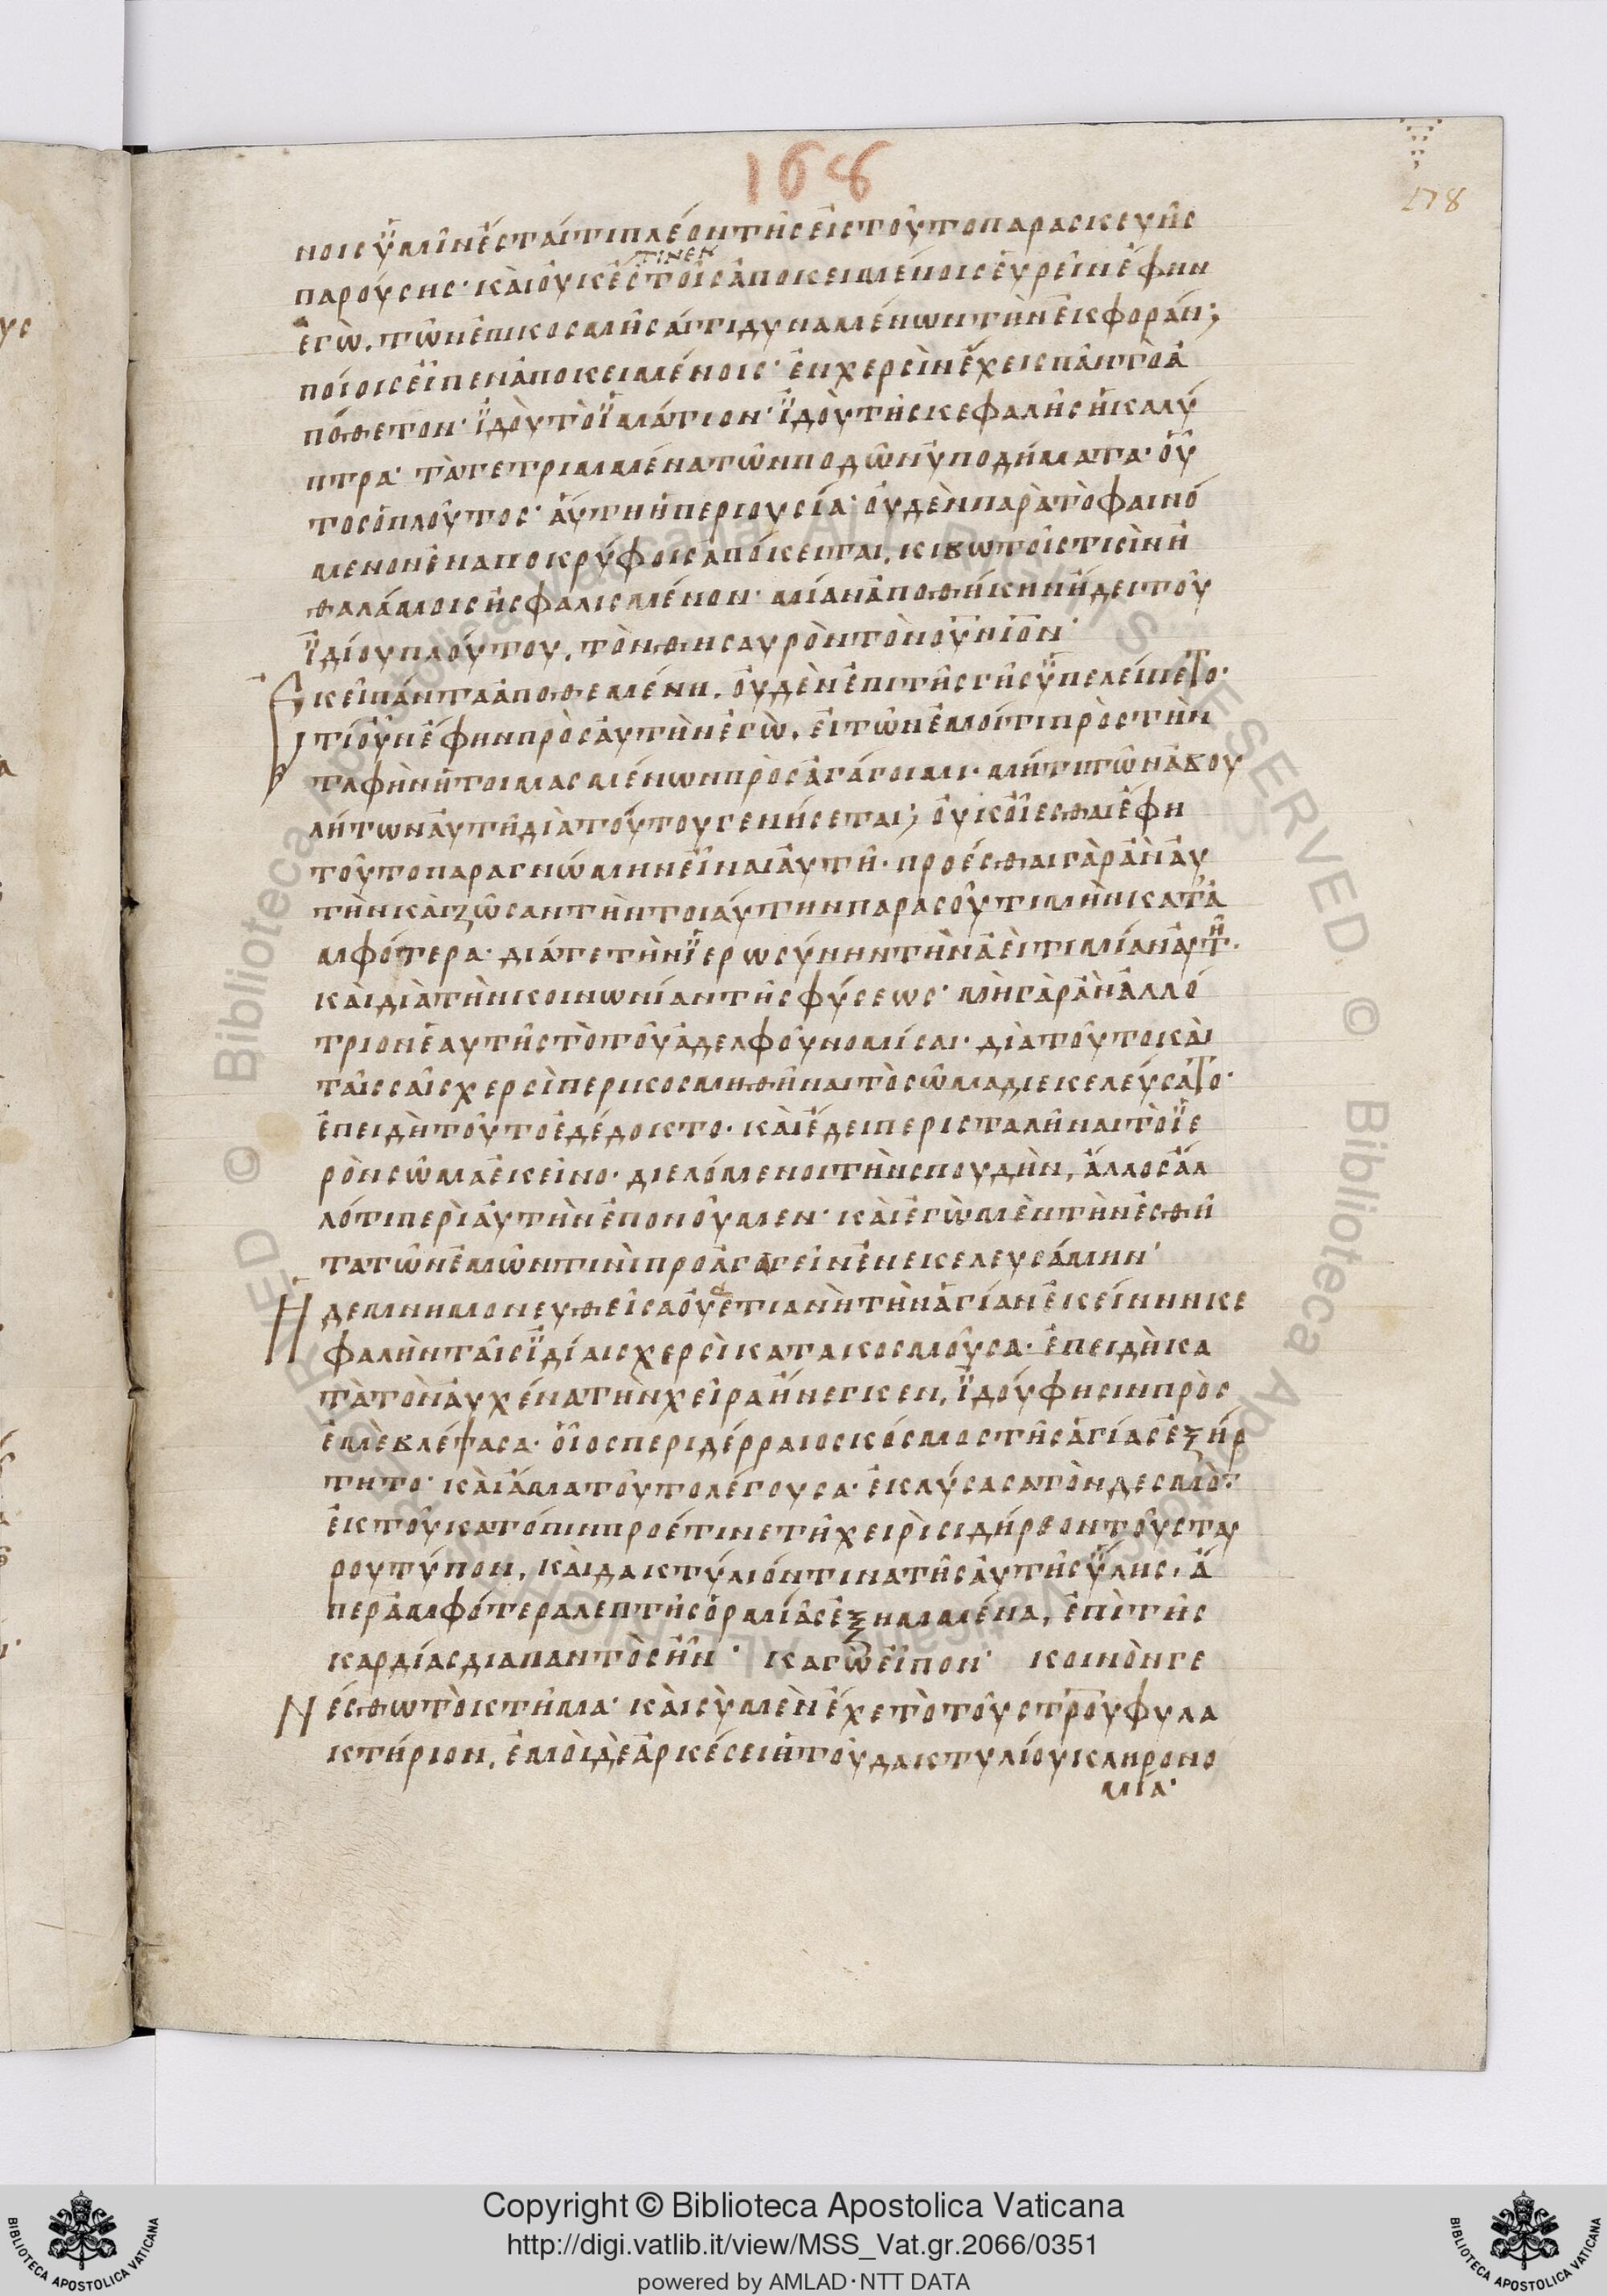 168
178
νοις ὑμῖν ἔσται τί πλέον τῆς εἰς τοῦτο παρασκευῆς
τιν ἐν
παρούσης· καὶ οὐκ ἔστοῖς ἀποκειμένοις εὑρεῖν ἔφην
ἐγὼ. τῶν ἐπικοσμῆσαί τι δυναμένων τὴν ἐκφοράν;
ποίοις εἶπεν ἀποκειμένοις· ἐν χερσὶν ἔχεις πᾶν τὸ ἀ
πόθετον· ἰδοὺ τὸ ἱμάτιον· ἰδοὺ τῆς κεφαλῆς ἡ καλύ
πτρα· τά τε τριμμένα τῶν ποδῶν ὑποδήματα· οὗ
τος ὁ πλοῦτος· αὕτη ἡ περιουσία· οὐδὲν παρὰ τὸ φαινό
μενον ἐν ἀποκρύφοις ἀπόκειται, κιβωτοῖς τισὶν ἢ
θαλάμοις ἠσφαλισμένον· μίαν ἀποθήκην ᾔδει τοῦ
ἰδίου πλούτου, τὸν θησαυρὸν τὸν οὐνιον·
Ἐκεῖ πάντα ἀποθεμένη, οὐδὲν ἐπὶ τῆς γῆς ὑπελείπετο·
τί οὖν ἔφην πρὸς αὐτὴν ἐγὼ, εἰ τῶν ἐμοί τι πρὸς τὴν
ταφὴν ἡτοιμασμένων προσαγάγοιμι· μή τι τῶν ἀβου
λήτων αὐτῇ διὰ τούτου γενήσεται; οὐκ οἴεσθαι ἔφη
τοῦτο παρὰ γνώμην εἶναι αὐτῇ· προέσθαι γὰρ ἂν αὐ
τὴν καὶ ζῶσαν τὴν τοιαύτην παρὰ σοῦ τιμὴν κατ' ἀ
μφότερα· διά τε τὴν ἱερωσύνην τὴν ἀεὶ τιμίαν αὐτῇ·
καὶ διὰ τὴν κοινωνίαν τῆς φύσεως· μὴ γὰρ ἂν ἀλλό
τριον ἑαυτῆς τὸ τοῦ ἀδελφοῦ νομίσαι· διὰ τοῦτο καὶ
ταῖς σαῖς χερσὶ περικοσμηθῆναι τὸ σῶμα διεκελεύσατο·
ἐπειδὴ τοῦτο ἐδέδοκτο· καὶ ἔδει περισταλῆναι τὸ ἱε
ρὸν σῶμα ἐκεῖνο· διελόμενοι τὴν σπουδὴν, ἄλλος ἄλ
λό τι περὶ αὐτὴν ἐπονοῦμεν· καὶ ἐγὼ μὲν τὴν ἐσθῆ
τα τῶν ἐμῶν τινὶ προαγαγεῖν ἐνεκελευσάμην·
Ἡ δὲ μνημονευθεῖσα οὐεστιανὴ τὴν ἁγίαν ἐκείνην κε
φαλὴν ταῖς ἰδίαις χερσὶ κατακοσμοῦσα· ἐπειδὴ κα
τὰ τὸν αὐχένα τὴν χεῖρα ἤνεγκεν, ἰδού φησιν πρὸς
ἐμὲ βλέψασα· οἷος περιδέρραιος κόσμος τῆς ἁγίας ἐξήρ
τητο· καὶ ἅμα τοῦτο λέγουσα· ἐκλύσασα τὸν δεσμὸν
ἐκ τοῦ κατόπιν προέτινε τῇ χειρὶ σιδήρεον τοῦ σταυ
ροῦ τύπον, καὶ δακτύλιόν τινα τῆς αὐτῆς ὕλης, ἅ
περ ἀμφότερα λεπτῆς ὁρμιᾶς ἐξημμένα, ἐπὶ τῆς
καρδίας διαπαντὸς ἦν· κἀγὼ εἶπον· κοινὸν γε
Νέσθω τὸ κτῆμα· καὶ σὺ μὲν ἔχε τὸ τοῦ στροῦ φυλα
κτήριον, ἐμοὶ δὲ ἀρκέσει ἡ τοῦ δακτυλίου κληρονο
μία·
Copyright © Biblioteca Apostolica Vaticana
http://digi.vatlib.it/view/MSS_Vat.gr.2066/0351
powered by AMLAD·NTT DATA